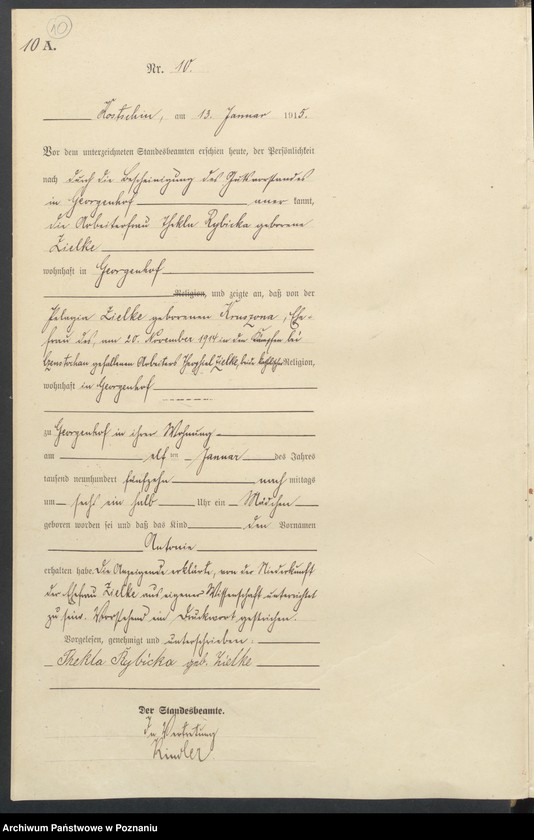 10
10 A.
Nr. 10.
Kostschin, am 13. Januar 1915.
Vor dem unterzeichneten Standesbeamten erschien heute, der Persönlichkeit
nach durch die Bescheinigung des Gutsvorstandes
in Georgenhof anerkannt,
die Arbeiterfrau Thekla Rybicka geborene
Zielke
wohnhaft in Georgenhof
Religion, und zeigte an, daß von der
Pelagia Zielke geborenen, Ehe-
frau des, am 20. November 1914 in den Kämpfen bei
gefallenen Arbeiters Zielke, beide Religion,
wohnhaft in Georgenhof
zu Georgenhof in ihrer Wohnung
am elften Januar des Jahres
tausend neunhundert fünfzehn nachmittags
um sechs ein halb Uhr ein Mädchen
geboren worden sei und daß das Kind den Vornamen
Antonie
erhalten habe. Die Anzeigende erklärte, von der Niederkunft
der Ehefrau Zielke aus eigener Wissenschaft unterrichtet
zu sein. Vorstehend ein Druckwort gestrichen.
Vorgelesen, genehmigt und unterschrieben:
Thekla Rybicka geb. Zielke
Der Standesbeamte.
In Vertretung
Kindler
Archiwum Państwowe w Poznaniu